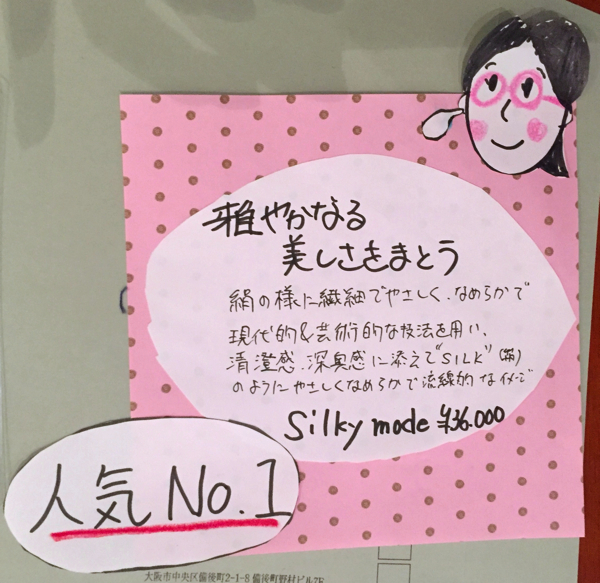 雅やかなる
美しさをまとう
絹の様に繊細でやさしく、なめらかで
現代的&芸術的な技法を用い、
清澄感、深奥感に添えて"SILK"(絹)
のようにやさしくなめらかで流線的なイメージ
Silky mode ¥36.000
人気 No.1
大阪市中央区備後町2-1-8 備後町野村ビル7F